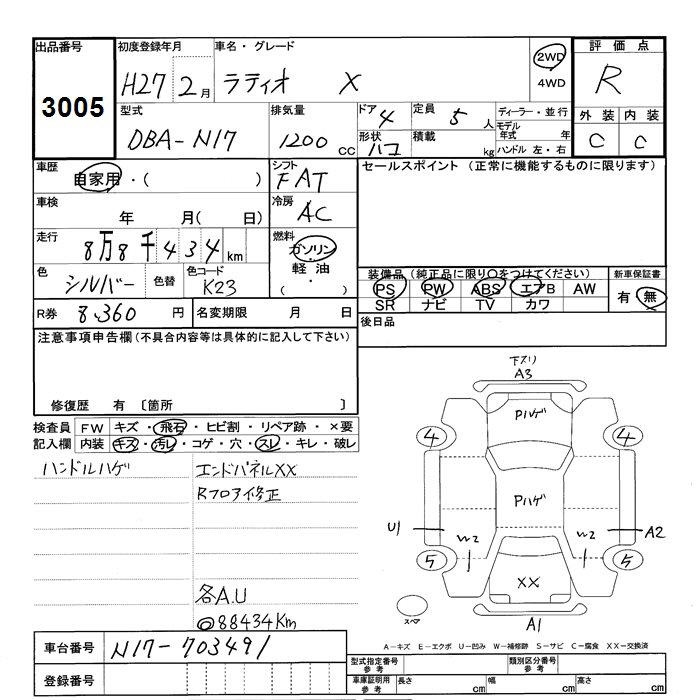 出品番号 初度登録年月 車名・グレード 評価点
3005 H27 2月 ラティオ X 2WD 4WD R
型式 排気量 ドア 4 定員 5人 ディーラー・並行 外装 内装
DBA-N17 1200cc 形状 ハコ 積載 kg モデル年式 年 C C
ハンドル 左・右
車歴 自家用・( ) シフト FAT セールスポイント (正常に機能するものに限ります)
車検 年 月( 日) 冷房 AC
走行 8万8千434km 燃料 ガソリン
軽油
( ・ )
色 シルバー 色替 色コード K23
装備品(純正品に限り○をつけてください) 新車保証書
PS PW ABS エアB AW 有・無
SR ナビ TV カワ
R券 8,360円 名変期限 月 日 後日品
注意事項申告欄(不具合内容等は具体的に記入して下さい)
修復歴 有 〔箇所 〕
検査員 FW キズ・飛石・ヒビ割・リペア跡・×要
記入欄 内装 キズ・汚レ・コゲ・穴・スレ・キレ・破レ
ハンドルハゲ エンドパネルXX
Rフロア修正
各A.U
◎88434Km
下スリ
A3
Pハゲ
4 4
Pハゲ
U1 W2 W2 A2
5 5
XX
スペア A1
A-キズ E-エクボ U-凹み W-補修跡 S-サビ C-腐食 XX-交換済
車台番号 N17-703491
登録番号
型式指定番号 参考 類別区分番号 参考
車庫証明用 参考 長さ cm 幅 cm 高さ cm